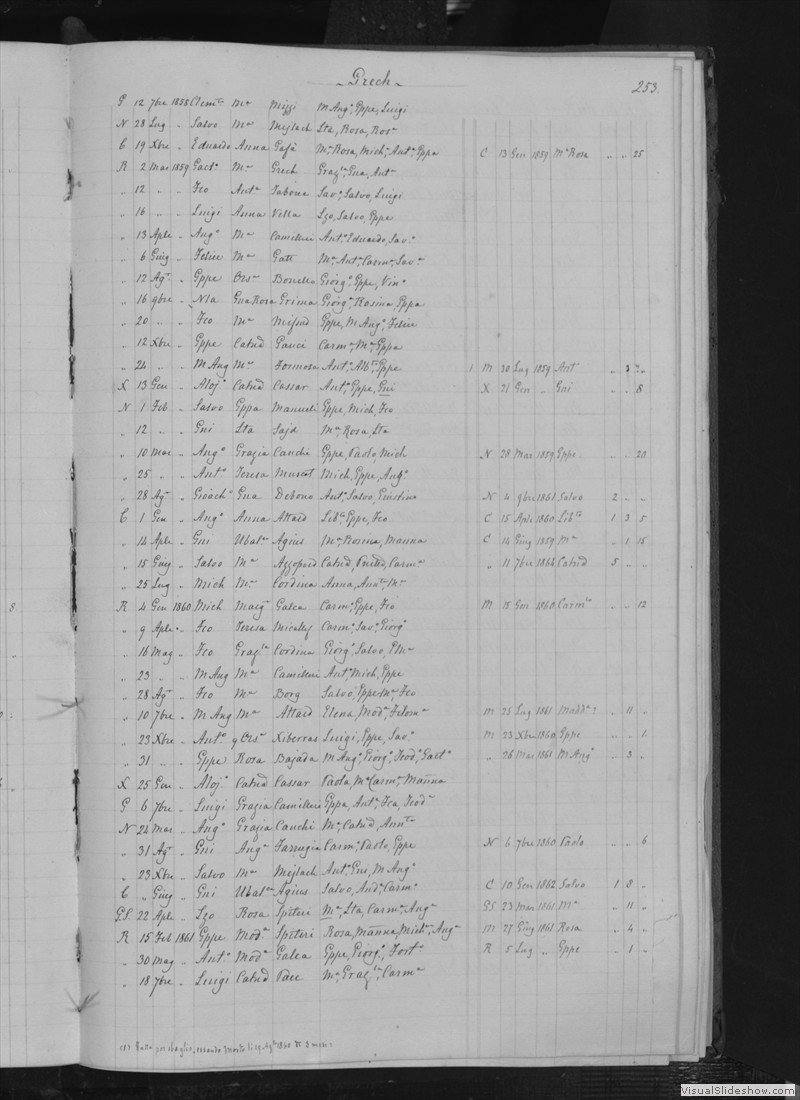 Grech
253.
G 12 7bre 1858 Clemte Ma Mizzi M Anga, Gppe, Luigi
N 28 Lug " Salvo Ma Mejlach Sta, Rosa, Rosa
C 19 Xbre " Eduardo Anna Gafà Ma Rosa, Mich, Anta, Gppa C 13 Gen 1859 Ma Rosa " " 25
R 2 Mar 1859 Gaeto Ma Grech Grazla, Gna, Anto
" 12 " " Fco Anta Tabone Savo, Salvo, Luigi
" 16 " " Luigi Anna Vella Lzo, Salvo, Gppe
" 13 Aple " Ango Ma Camilleri Anto, Eduardo, Savo
" 6 Giug " Felice Ma Gatt Ma, Anta, Carma, Savo
" 12 Agto " Gppe Orsa Bonello Giorgo, Gppe, Vin
" 16 9bre " Nla Gna Rosa Grima Giorgo, Rosina, Gppa
" 20 " " Fco Ma Mifsud Gppe, M Anga, Felice
" 12 Xbre " Gppe Catnd Gauci Carma, Ma, Gppa
" 24 " " M Ang Ma Formosa Anto, Albto, Gppe 1 M 30 Lug 1859 Anto " 3 20
X 13 Gen " Alojo Catnd Cassar Anto, Gppe, Gni X 21 Gen " Gni " " 8
N 1 Feb " Salvo Gppa Manueli Gppe, Mich, Fco
" 12 " " Gni Sta Sajd Ma, Rosa, Sta
" 10 Mar " Ango Grazia Cauchi Gppe, Paolo, Mich N 28 Mar 1859 Gppe " " 20
" 25 " " Anto Teresa Muscat Mich, Gppe, Ango
" 28 Agto " Gioacho Gna Debono Anto, Salvo, Giustina N 4 9bre 1861 Salvo 2 " "
C 1 Gen " Ango Anna Attard Sebto, Gppe, Fco C 15 Aple 1860 Sebto 1 3 5
" 14 Aple " Gni Ubala Agius Ma, Rosina, Marina C 14 Giug 1859 Ma " 1 15
" 15 Giug " Salvo Ma Azzopard Catnd, Carma " 11 7bre 1864 Catnd 5 " "
" 25 Lug " Mich Ma Cordina Anna, Annta, Ma
R 4 Gen 1860 Mich Marga Galea Carmo, Gppe, Fco M 15 Gen 1860 Carmlo " " 12
" 9 Aple " Fco Teresa Micallef Carmo, Savo, Giorgo
" 16 Mag " Fco Grazla Cordina Giorgo, Salvo, Ma
" 23 " " M Ang Ma Camilleri Anto, Mich, Gppe
" 28 Agto " Fco Ma Borg Salvo, Gppe Ma, Fco
" 10 7bre " M Ang Ma Attard Elena, Moda, Filoma M 25 Lug 1861 " 11 "
" 23 Xbre " Anto Orsa Xiberras Luigi, Gppe, Savo M 23 Xbre 1860 Gppe " " 1
" 31 " " Gppe Rosa Bajada M Ango, Giorgo, Teodo, Gaeto " 26 Mar 1861 M Ango " 3 "
X 25 Gen " Alojo Catnd Cassar Paola, Ma Carma, Marina
G 6 7bre " Luigi Grazia Camilleri Gppa, Anta, Fca, Teoda
N 24 Mar " Ango Grazia Cauchi Ma, Catnd, Annta
" 31 Agto " Gni Anga Farrugia Carma, Paolo, Gppe N 6 7bre 1860 Paolo " " 6
" 23 Xbre " Salvo Ma Mejlach Anto, Gni, M Ang
C " Giug " Gni Ubala Agius Salvo, Anda, Carma C 10 Gen 1862 Salvo 1 8 "
G.S. 22 Aple " Lzo Rosa Spiteri Ma, Sta, Carma, Anga G.S 23 Mar 1861 Ma " 11 "
R 15 Feb 1861 Gppe Moda Spiteri Rosa, Marina, Mich, Anga M 27 Giug 1861 Rosa " 4 "
" 30 Mag " Anto Moda Galea Gppe, Giorgo, Fort R 5 Lug " Gppe " 1 "
" 18 7bre " Luigi Catnd Pace Ma, Grazla, Carma
per sbaglio, essendo morto li 19 Agto 1860 di 2 mesi
VisualSlideshow.com